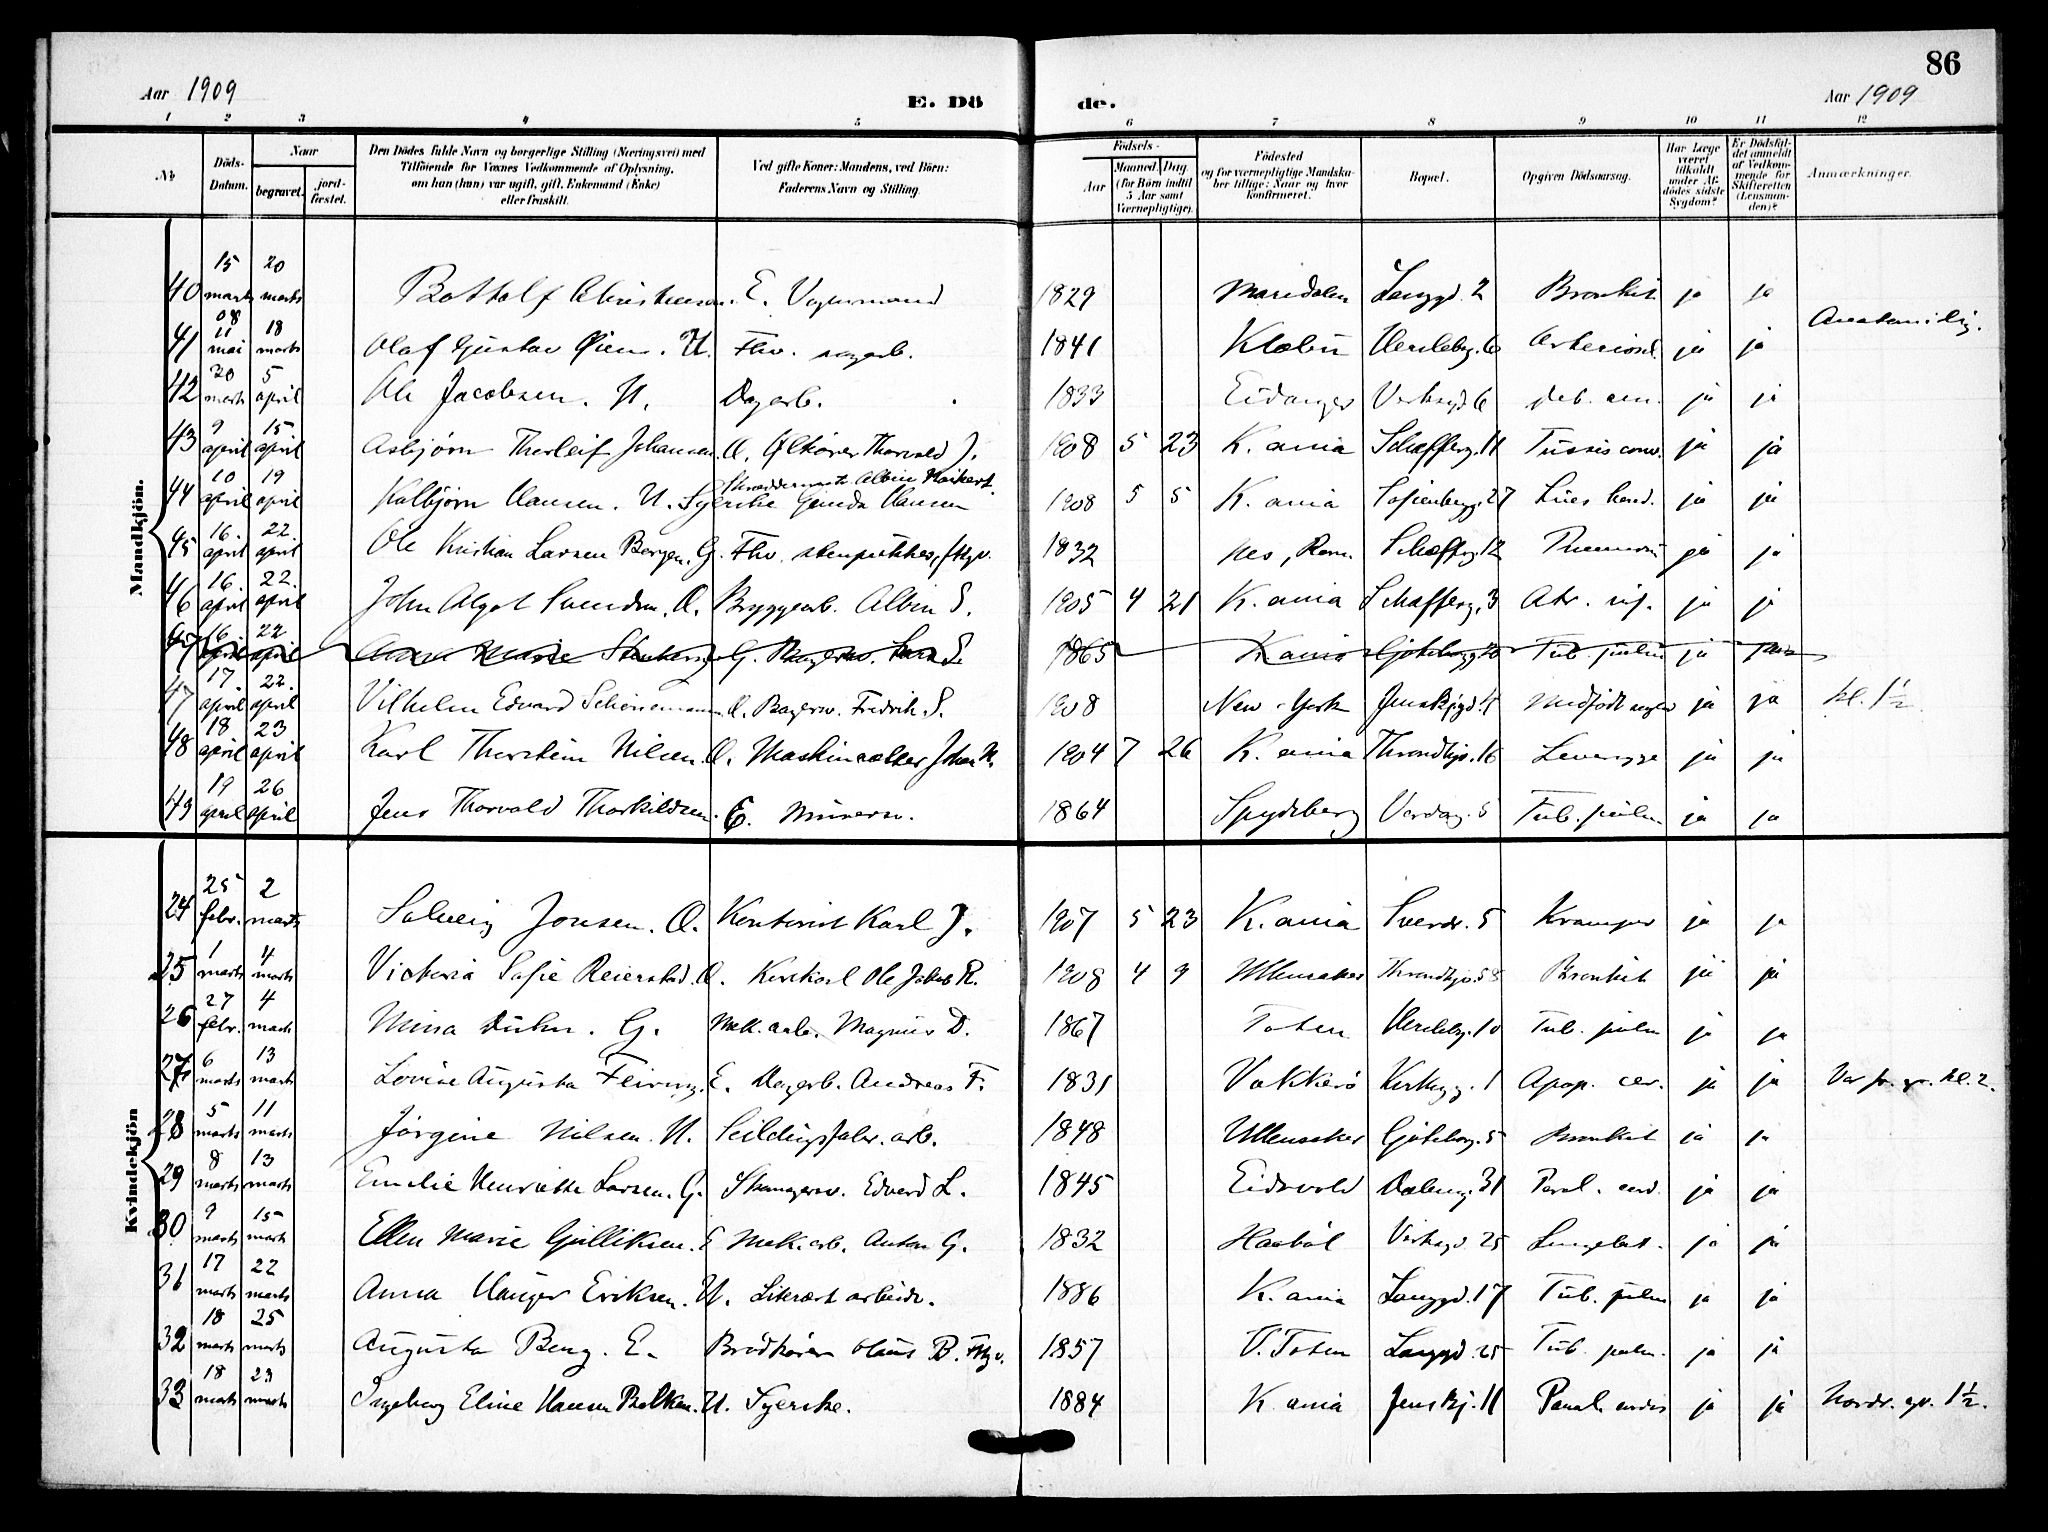 86
Aar 1909 E. Dö de. Aar 1909
1 2 3 4 5 6 7 8 9 10 11 12
№ Döds-Datum. Naar begravet. jord-fæstet. Den Dödes fulde Navn og borgerlige Stilling (Næringsvei) med Tilföiende for Voxnes Vedkommende af Oplysning, om han (hun) var ugift, gift, Enkemand (Enke) eller fraskilt. Ved gifte Koner: Mandens, ved Börn: Faderens Navn og Stilling. Födsels- Aar Maaned. Dag. (for Börn indtil 5 Aar samt Værnepligtige). Födested og for værnepligtige Mandskaber tillige: Naar og hvor konfirmeret. Bopæl. Opgiven Dödsaarsag. Har Læge været tilkaldt under Afdödes sidste Sygdom? Er Dödsfaldet anmeldt af Vedkommende for Skifteretten (Lensmanden)? Anmærkninger.
Mandkjön.
40 15 marts 20 marts Bottolf Christensen. E. Vognmand 1829 Maridalen Langgd. 2 Bronkit ja ja
41 08 11 mai 18 marts Olaf Gustav Øien. U. Fhv. 1841 Klæbu Herslebg. 6 Arteriosel. ja ja
42 20 marts 5 april Ole Jacobsen. U. Dagarb. 1833 Eidanger Verksgd 6 deb. sen. ja ja
43 9 april 15 april Asbjörn Thorleif Johansen. U. Ølkjörer Thorvald J. 1908 5 23 K.ania Schafferg. 11 Tussis conv. ja ja
44 10 april 19 april Kolbjörn Hansen. U. Syerske Gunda Hansen 1908 5 5 K.ania Sofienbergg. 27 Lues hered. ja ja
45 16. april 22. april Ole Kristian Larsen Bergen. G. Fhv. stenpukker, fhv. 1832 Nes, Rom. Schafferg. 12 Pneumoni ja ja
46 16. april 22. april John Algot Svendsen. U. Bryggearb. Albin S. 1905 4 21 K.ania Schafferg. 3 ja ja
47 16. april 22 april Anna Marie G. 1865 K.ania Tub. pulm ja
47 17. april 22. april Vilhelm Edvard Schönemann. U. Bagersv. Fredrik S. 1908 New-York Medfödt ja ja kl. 1½
48 18 april 23 april Karl Thorstein Nilsen. U. Maskinsætter Johan N. 1904 7 26 K.ania Throndhjv. 16 ja ja
49 19 april 26 april Jens Thorvald Thorkildsen. E. Murersv. 1864 Spydeberg 5 Tub. pulm. ja ja
Kvindekjön
24 25 febr. 2 marts Solveig Jonsen. U. Kontorist Karl J. 1907 5 23 K.ania Sverdr. 5 Kramper ja ja
25 1 marts 4 marts Victoria Sofie Reierstad. U. Ole Jakob R. 1908 4 9 Ullensaker Throndhjv. 58 Bronkit ja ja
26 27 febr. 4 marts Mina Duhn. G. Mek. arb. Magnus D. 1867 Toten Herslebg. 10 Tub. pulm ja ja
27 6 marts 13 marts Lovise Augusta Feiring. E. Dagarb. Andreas F. 1831 Vækkerö Kirkegg. 1 Apop. cer. ja ja Var fr. gr. kl. 2.
28 5 marts 11 marts Jörgine Nilsen. U. Seildugsfabr. arb. 1848 Ullensaker Göteborg. 5 Bronkit ja ja
29 8 marts 13 marts Emelie Henriette Larsen. G. Edvard L. 1845 Eidsvold Dæleng. 31 Paral. cord. ja ja
30 9 marts 15 marts Ellen Marie Gulliksen. E Mek. arb. Anton G. 1832 Haaböl Verksgd. 25 Lungebet. ja ja
31 17 marts 22 marts Anna Hauger Eriksen. U. 1886 K.ania Langgd. 17 Tub. pulm ja ja
32 18 marts 25 marts Augusta Berg. E. Brödkjörer Olaus B. fhv. 1857 V. Toten Langgd. 25 Tub. pulm. ja ja
33 18 marts 23 marts Ingeborg Eline Hansen Balken. U. Syerske. 1884 K.ania Jenskj. 11 Paral. cordis ja ja Nordr. gr. 1½.